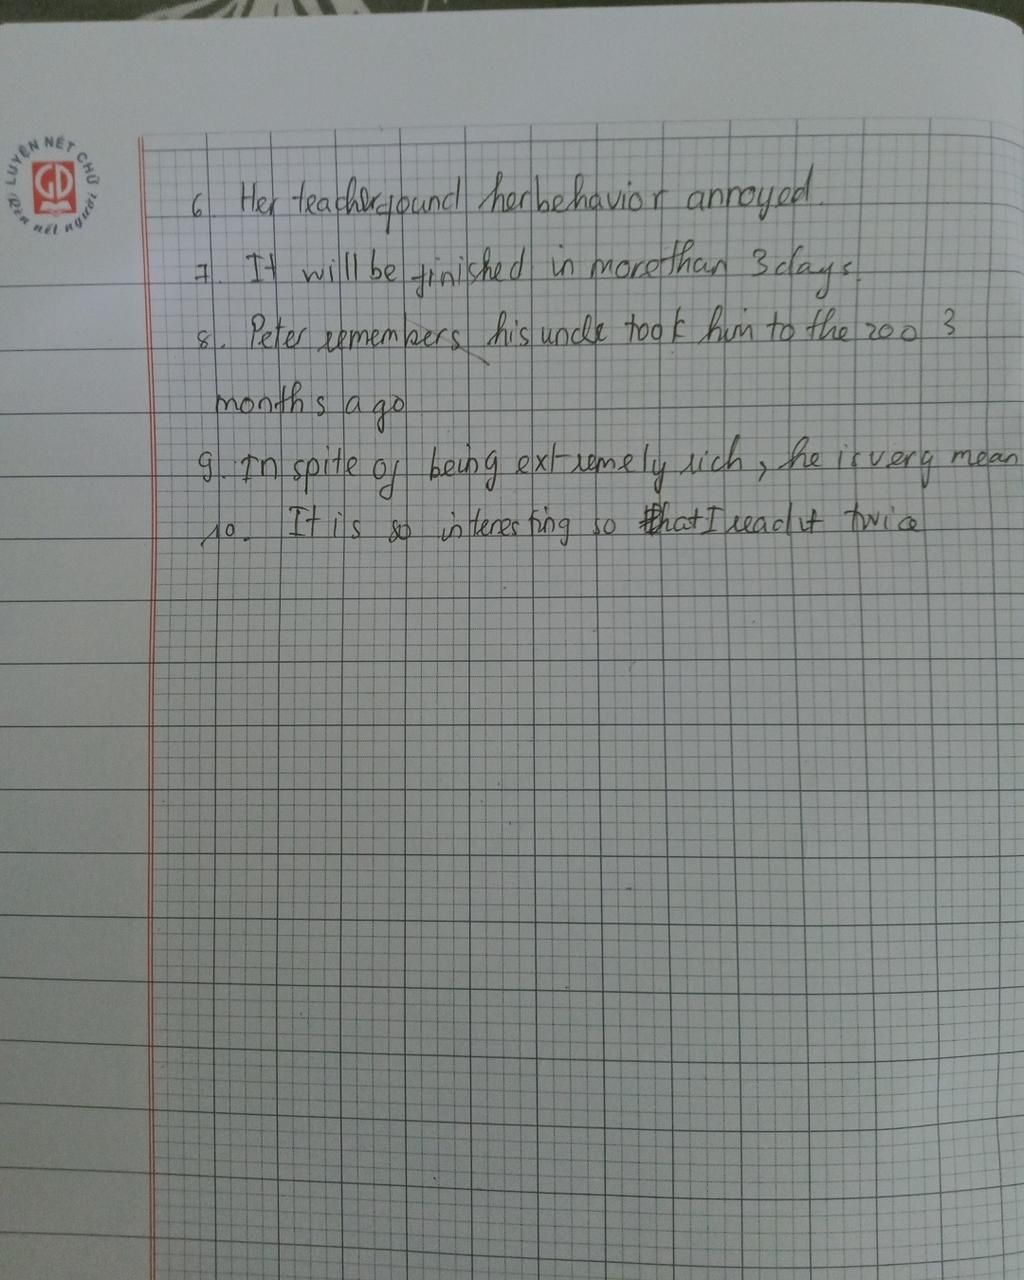 LUYỆN NÉT CHỮ
GD
Rèn nết người
6. Her teacher found her behavior annoyed.
7. It will be finished in more than 3 days.
8. Peter remembers his uncle took him to the zoo 3
months ago
9. In spite of being extremely rich, he is very mean
10. It is so interesting so that I read it twice